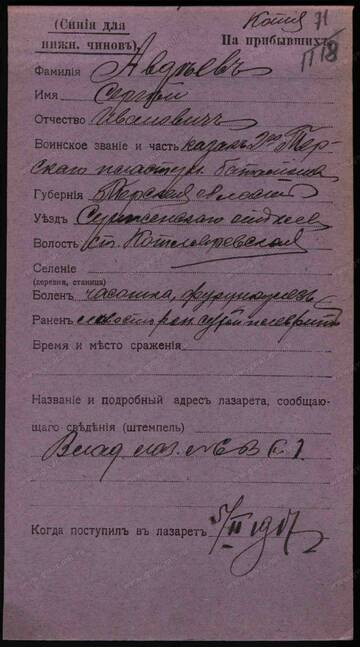 Копія 71
(Синія для
нижн. чиновъ).
На прибывшихъ
П18
Фамилія Авдѣевъ
Имя Сергѣй
Отчество Ивановичъ
Воинское званіе и часть казакъ 2го Тер-
скаго пластун. баталіона
Губернія Терская область
Уѣздъ Сунженскаго отдѣла
Волость ст. Котляревская
Селеніе
(деревня, станица)
Боленъ чесотка, фурункулезъ
Раненъ сухой плевритъ
Время и мѣсто сраженія
Названіе и подробный адресъ лазарета, сообщаю-
щаго свѣдѣнія (штемпель)
Влад. лаз. №
Когда поступилъ въ лазаретъ 5/II 1917